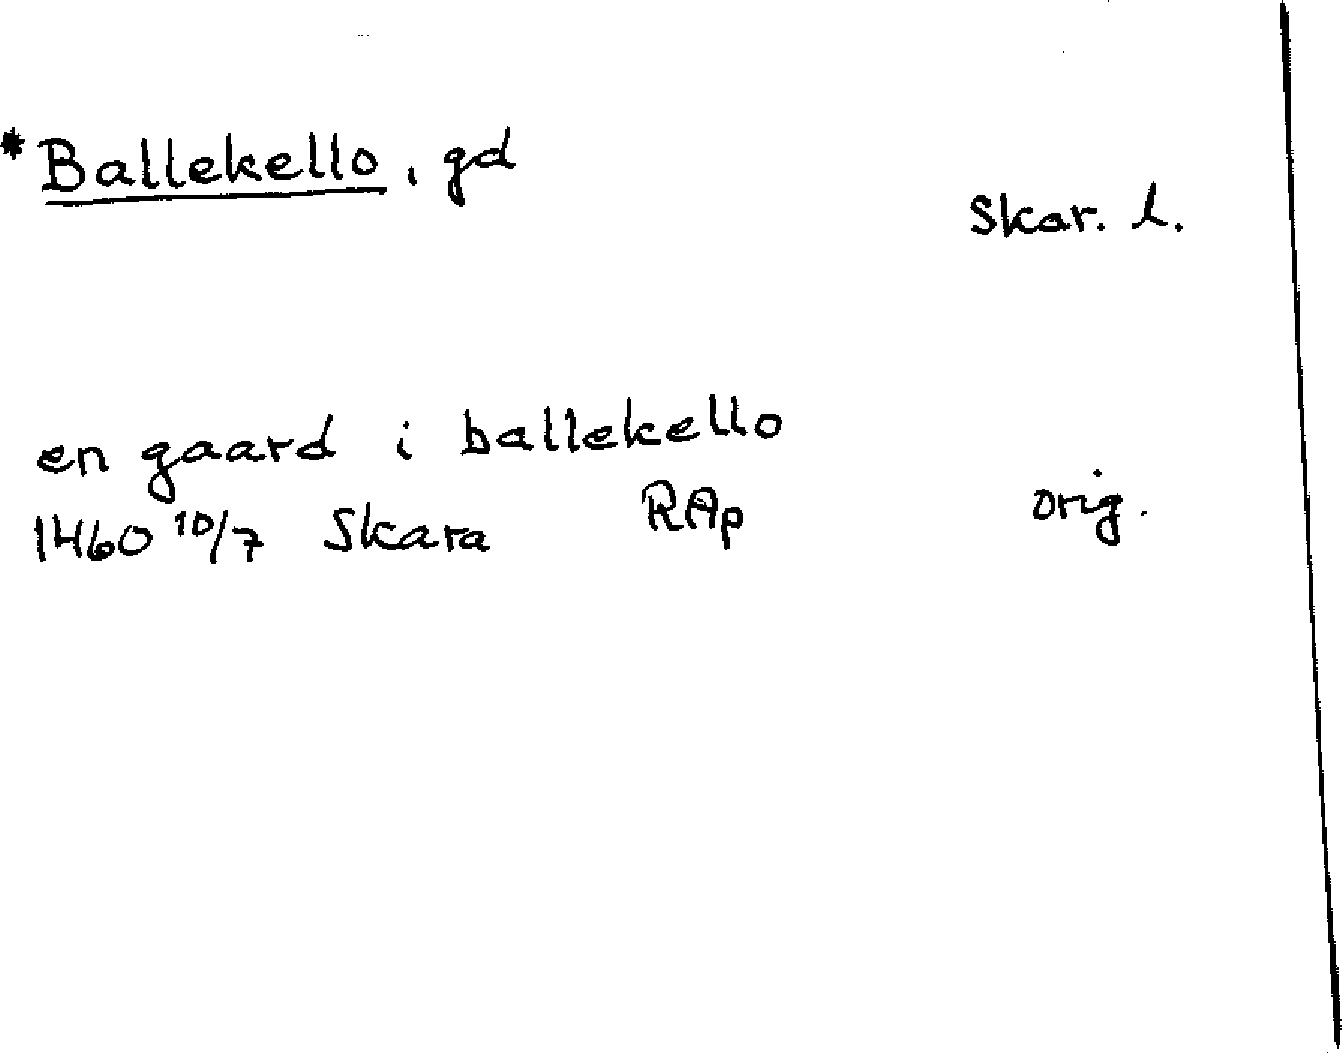 *Ballekello, gd
Skar. l.
en gaard i ballekello
1460 10/7 Skara RAp orig.